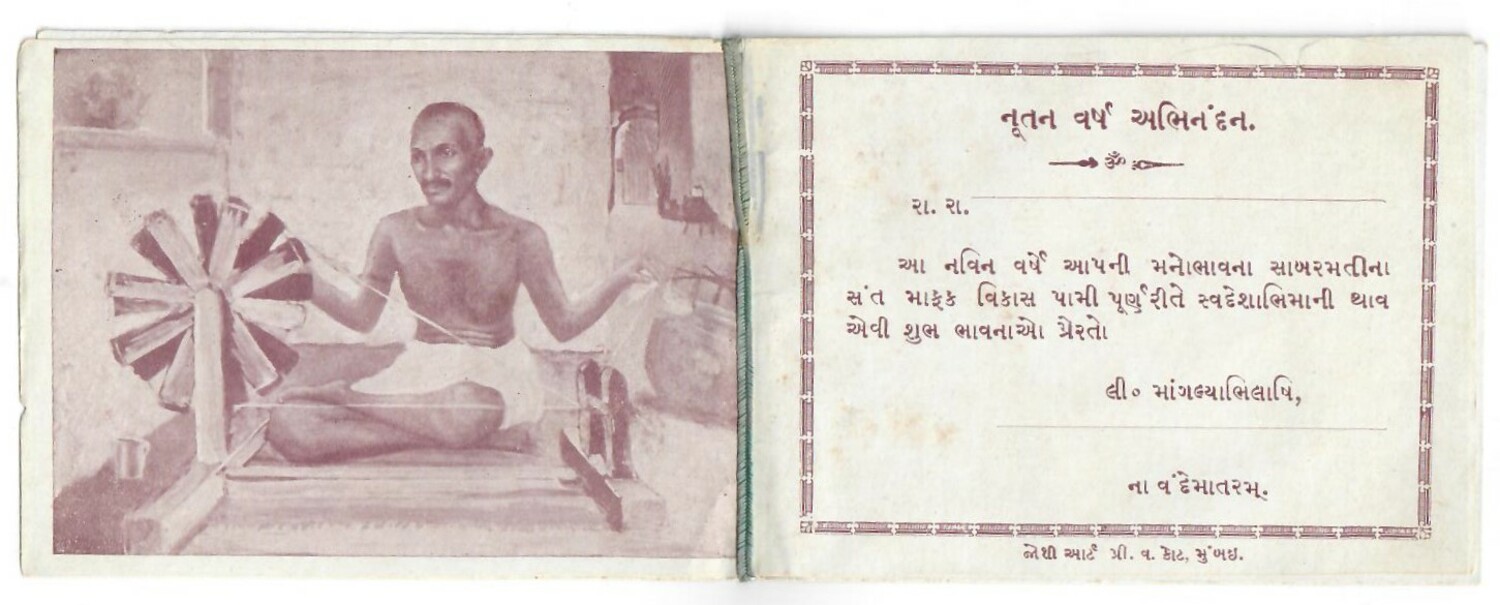 નૂતન વર્ષ અભિનંદન.
ૐ
રા. રા.
આ નવિન વર્ષે આપની મનોભાવના સાબરમતીના
સંત માફક વિકાસ પામી પૂર્ણ રીતે સ્વદેશાભિમાની થાવ
એવી શુભ ભાવનાઓ પ્રેરતો
લી૦ માંગલ્યાભિલાષિ,
ના વંદેમાતરમ્.
જોષી આર્ટ પ્રી. વ. કોટ, મુંબઇ.